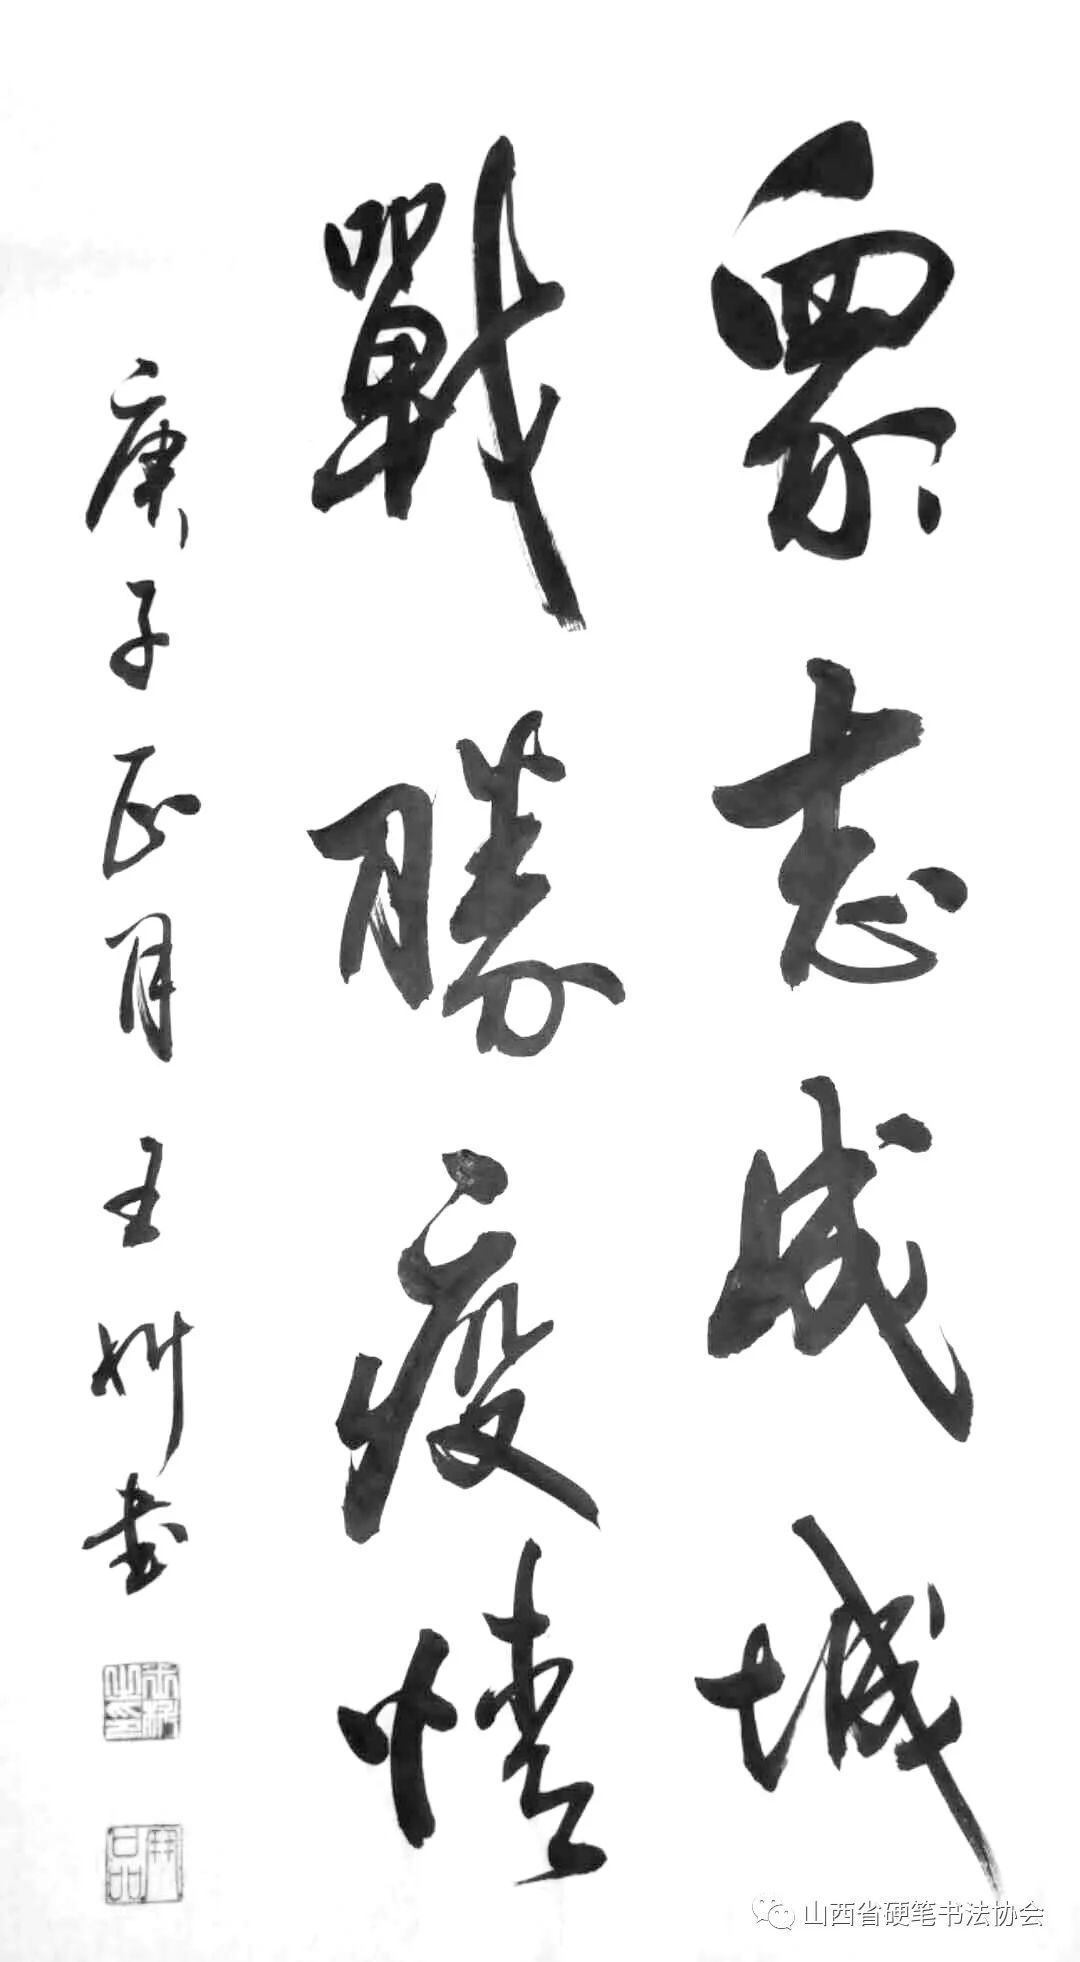 眾志成城
戰勝疫情
庚子正月王州書
山西省硬笔书法协会